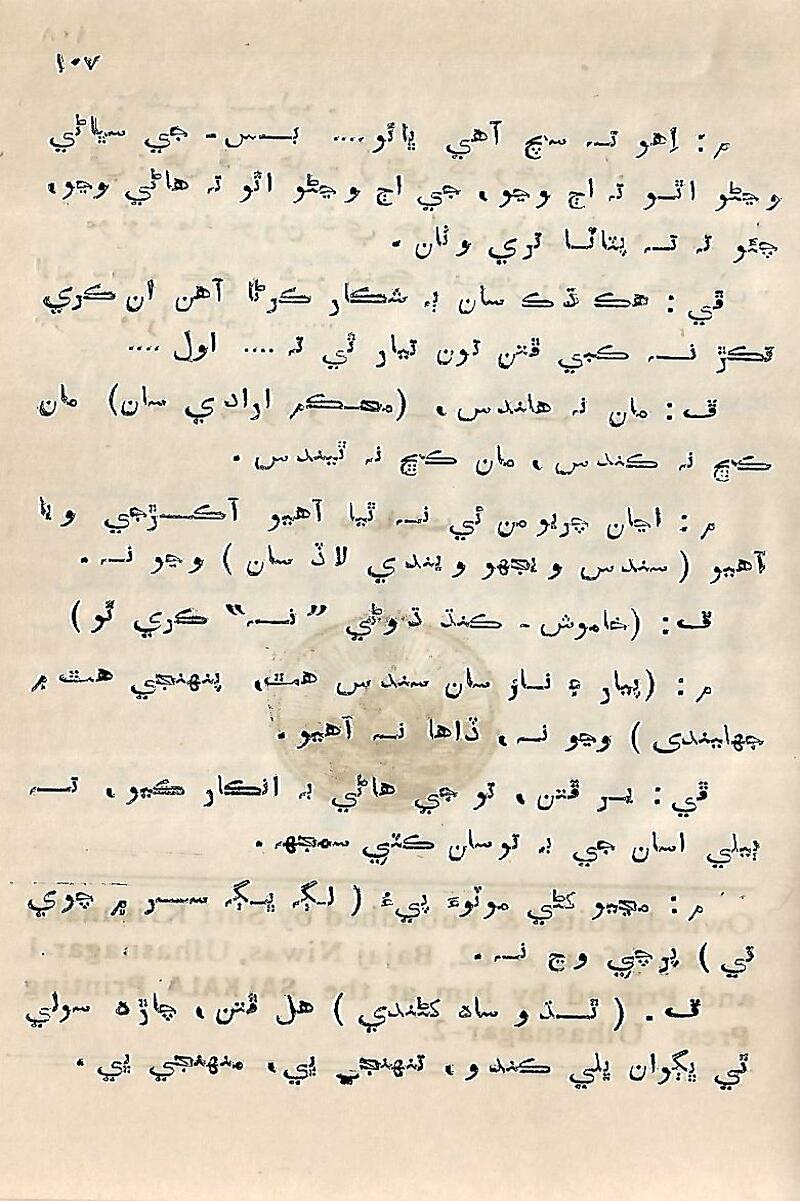 ١٠٧
م : اِهو تہ سچ آهي ڀائو.... بس - جي سڀاڻي
وڃڻو اٿو تہ اڄ وڃو، جي اڄ وڃڻو اٿو تہ هاڻي وڃو،
چئو تہ تہ پٽاٽا تري وٺان .
ڦي : هڪ ڌڪ سان ٻہ شڪار ڪرڻا آهن ان ڪري
تڪڙ نہ ڪبي ڦتن تون تيار ٿي تہ .... اول ....
ف : مان نہ هلندس، (محڪم ارادي سان) مان
ڪڇ نہ ڪندس، مان ڪڇ نہ ٿيندس .
م : اڃان چريو من ئي نہ ٿيا آهيو آڪڙجي ويا
آهيو ( سندس ويجهو ويندي لاڏ سان ) وڃو نہ .
ف : (خاموش - ڪنڌ ڌوڻي ”نہ“ ڪري ٿو)
م : (پيار ۽ ناز سان سندس هٿ، پنهنجي هٿ ۾
جهليندي ) وڃو نہ، ڏاها نہ آهيو .
ڦي : پر ڦتن، تو جي هاڻي بہ انڪار ڪيو، تہ
ٻيلي اسان جي بہ توسان ڪٽي سمجهہ .
م : مڃيو کڻي موٽوءَ پيءُ ( لڳہ ڀڳہ سسر ۾ چوي
ٿي ) پرچي وڃ نہ .
ف . ( ٿڌو ساهہ کڻندي ) هل ڦتن، چاڙهہ سولي
تي ڀڳوان ڀلي ڪندو، تنهنجي ٻي، منهنجي ٻي .